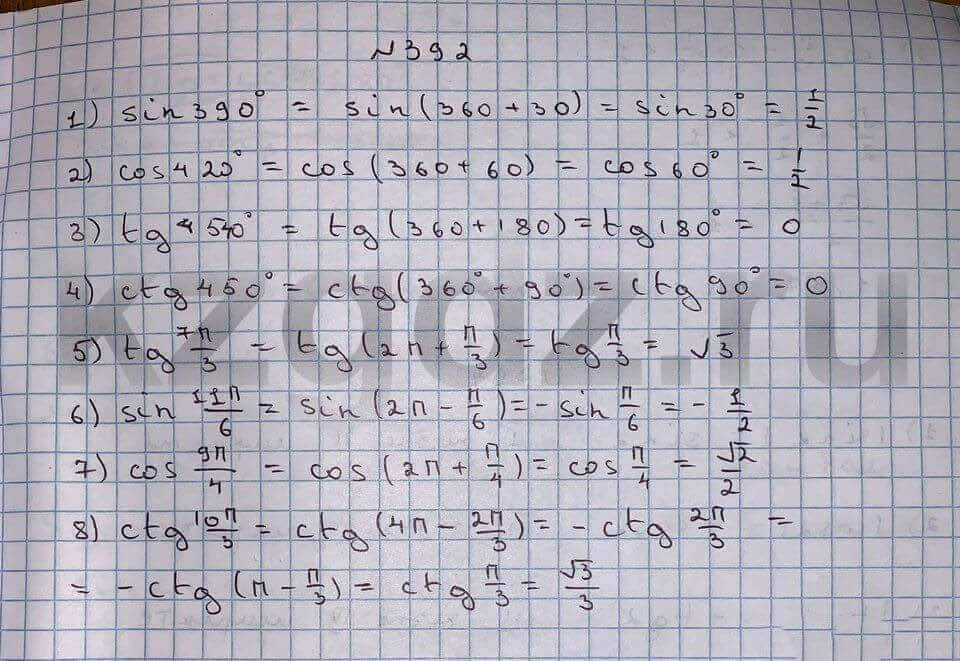 №392
1) sin390° = sin(360+30) = sin30° = 1/2
2) cos420° = cos(360+60) = cos60° = 1/2
3) tg 540° = tg(360+180) = tg180° = 0
4) ctg450° = ctg(360°+90°) = ctg90° = 0
5) tg 7π/3 = tg(2π + π/3) = tg π/3 = √3
6) sin 11π/6 = sin(2π - π/6) = - sin π/6 = - 1/2
7) cos 9π/4 = cos(2π + π/4) = cos π/4 = √2/2
8) ctg 10π/3 = ctg(4π - 2π/3) = - ctg 2π/3 =
= - ctg(π - π/3) = ctg π/3 = √3/3
kzgdz.ru